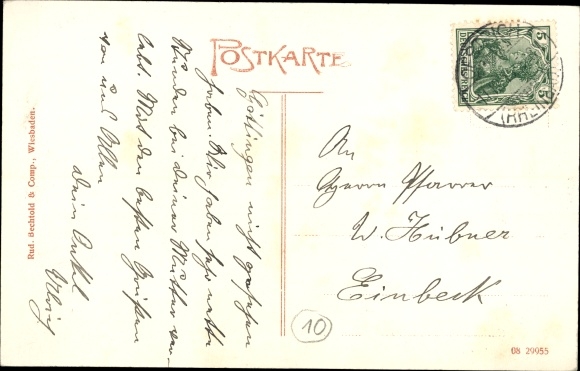 POSTKARTE
5 5
Göttingen nicht gesehen
haben. Wir haben sehr nette
Stunden bei Deiner Mutter ver-
lebt. Mit den besten Grüßen
von uns Allen
Dein Onkel
An
Herrn Pfarrer
W. Hübner
Einbeck
10
Rud. Bechtold & Comp., Wiesbaden.
08 29955